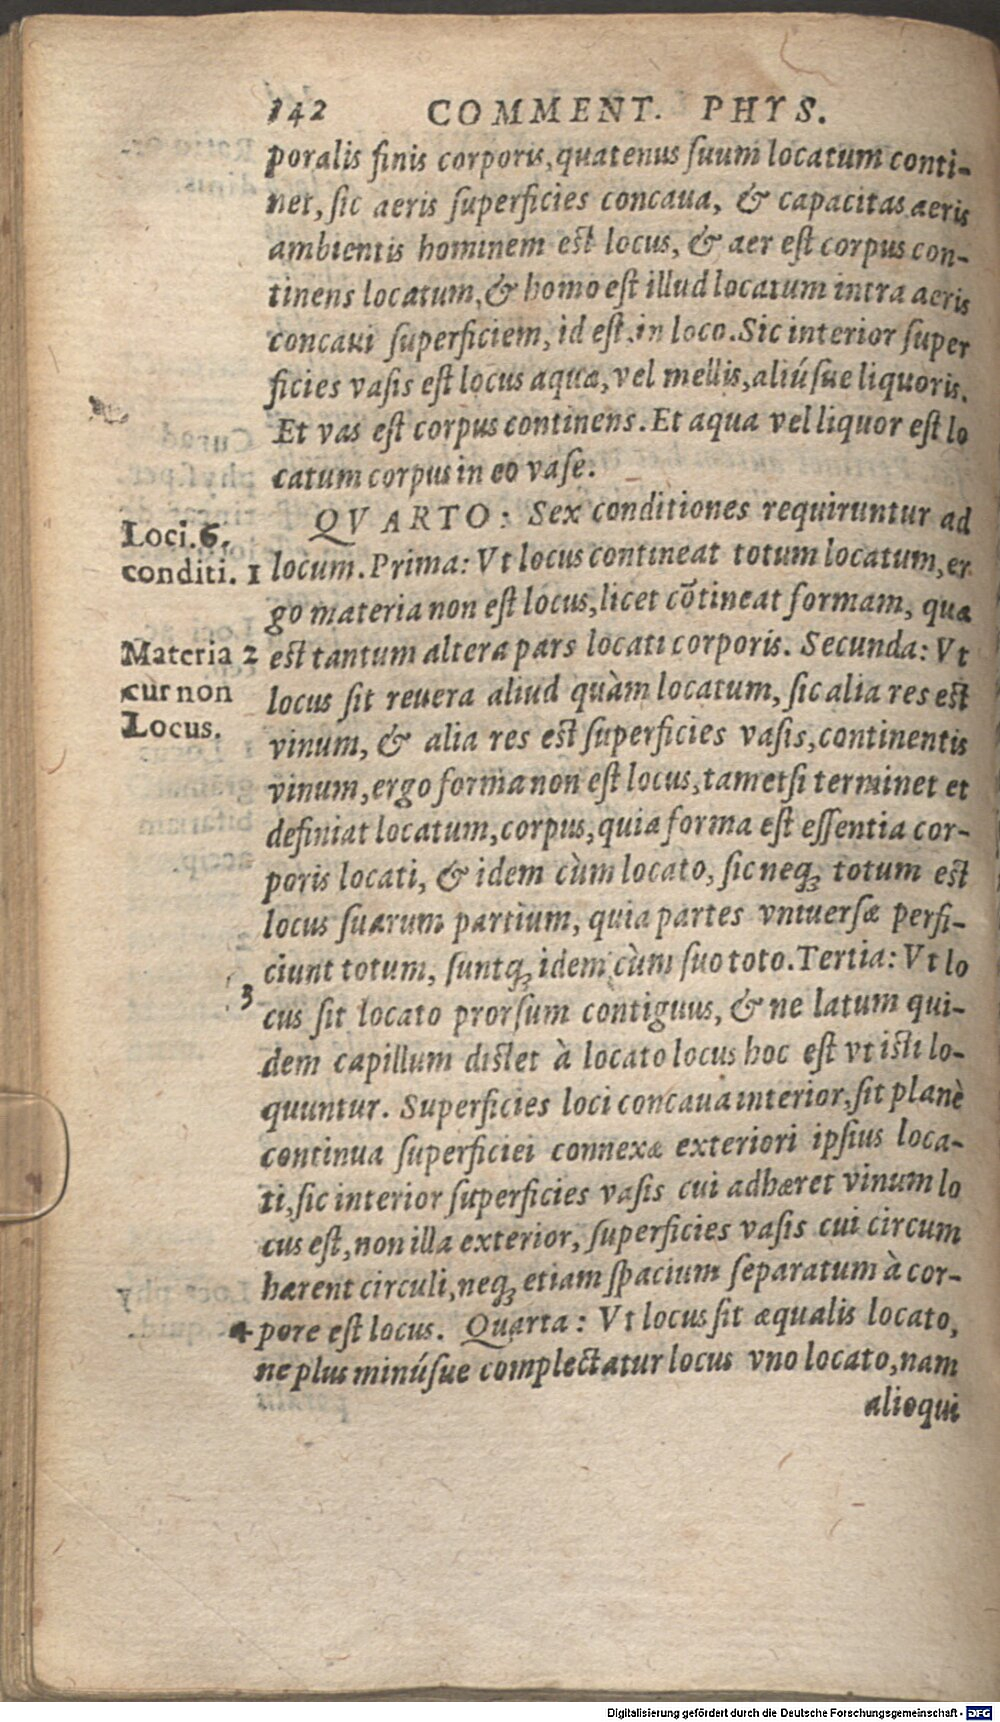 142 COMMENT. PHYS.
poralis finis corporis, quatenus suum locatum conti-
net, sic aeris superficies concaua, & capacitas aeris
ambientis hominem est locus, & aer est corpus con-
tinens locatum, & homo est illud locatum intra aeris
concaui superficiem, id est, in loco. Sic interior super
ficies vasis est locus aquæ, vel mellis, aliúsue liquoris.
Et vas est corpus continens. Et aqua vel liquor est lo
catum corpus in eo vase.
QVARTO: Sex conditiones requiruntur ad
Loci. 6.
conditi. 1 locum. Prima: Vt locus contineat totum locatum, er
go materia non est locus, licet cõtineat formam, quæ
Materia 2 est tantum altera pars locati corporis. Secunda: Vt
cur non
Locus.
locus sit reuera aliud quàm locatum, sic alia res est
vinum, & alia res est superficies vasis, continentis
vinum, ergo forma non est locus, tametsi terminet et
definiat locatum, corpus, quia forma est essentia cor-
poris locati, & idem cùm locato, sic neq; totum est
locus suarum partium, quia partes vniuersæ perfi-
ciunt totum, suntq; idem cùm suo toto. Tertia: Vt lo
3 cus sit locato prorsum contiguus, & ne latum qui-
dem capillum distet à locato locus hoc est vt isti lo-
quuntur. Superficies loci concaua interior, sit planè
continua superficiei connexæ exteriori ipsius loca-
ti, sic interior superficies vasis cui adhæret vinum lo
cus est, non illa exterior, superficies vasis cui circum
hærent circuli, neq; etiam spacium separatum à cor-
4 pore est locus. Quarta: Vt locus sit æqualis locato,
ne plus minúsue complectatur locus vno locato, nam
alioqui
Digitalisierung gefördert durch die Deutsche Forschungsgemeinschaft - DFG